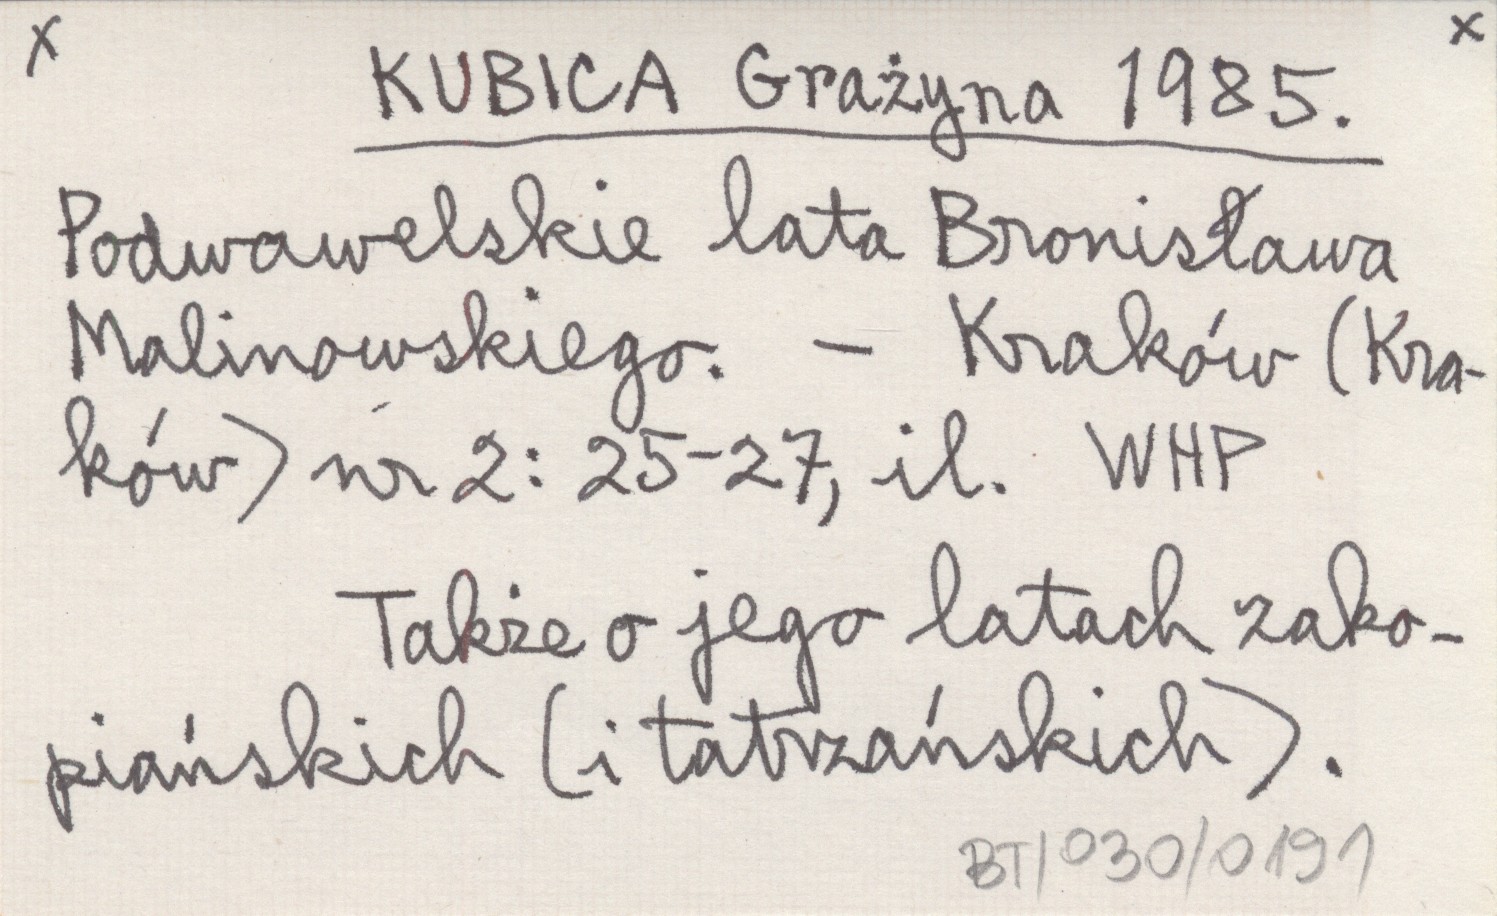 x x
KUBICA Grażyna 1985.
Podwawelskie lata Bronisława
Malinowskiego. — Kraków (Kra-
ków) nr 2: 25-27, il. WHP
Także o jego latach zako-
piańskich (i tatrzańskich).
BT/030/0191